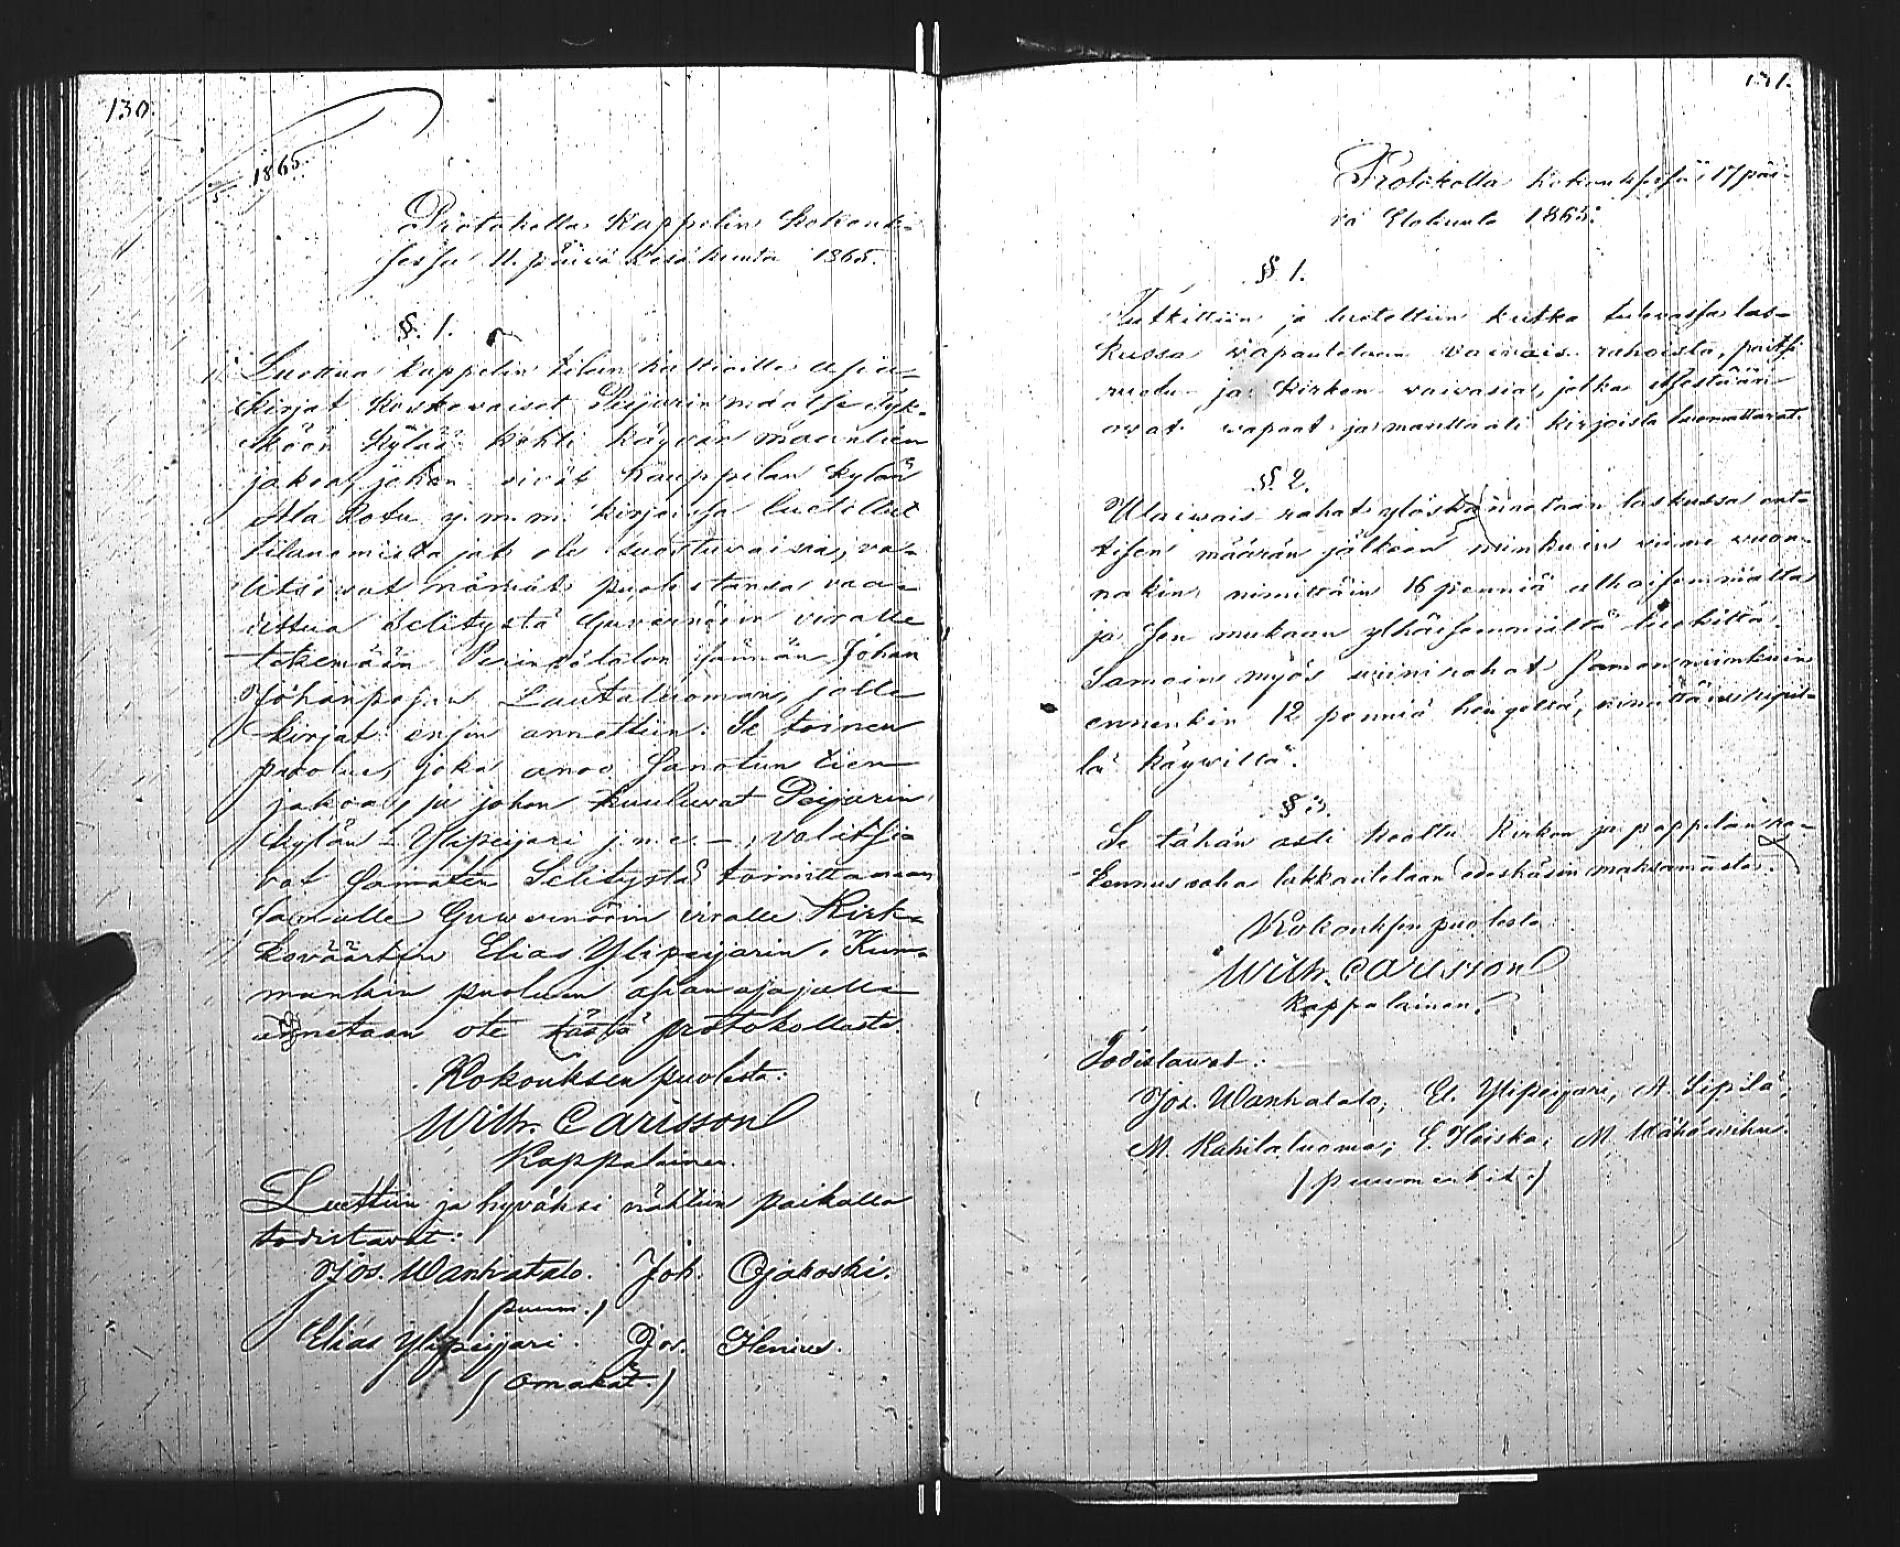 130.
1865.
Protokolla Kappelin kokouk-
sessa 11. päivä kesäkuuta 1865.
§. 1.
Luettua kappelin tilan haltioille asia-
kirjat koskevaiset Peijarin maatse Syk-
köön kylää kohti käyvän maantien
jakoa, johon eivät Kauppilan kylän
Ala Rotu y.m.m. kirjoissa luetellut
tilanomistajat ole suostuvaisia, va-
litsivat nämät puolestansa vaa-
dittua Selitystä Guvernöörin viralle
tekemään Perintötilan isännän Johan
Johanpojan Lautaluoman, jolle
kirjat ensin annettiin. Se toinen
puolue, joka anoo sanotun tien
jakoa, ja johon kuuluvat Peijarin
kylän - Ylipeijari j.n.e. -, valitsi-
vat samaten Selitystä toimittamaan
samalle Guwernöörin viralle Kirk-
koväärtin Elias Ylipeijarin. Kum-
mankin puoluen asianajajalle
annetaan ote tästä protokollasta.
Kokouksen puolesta:
Wilh. Carlsson
Kappalainen.
Luettiin ja hyväksi nähtiin paikalla
todistavat:
Jos. Wanhatalo. Joh. Ojakoski.
(puum.)
Elias Ylipeijari. Jos. Ilenius.
(omakät.)
131.
Protokolla kokouksessa 17 päi-
vä Elokuuta 1865.
§ 1.
Tutkittiin ja lueteltiin kutka tulevassa las-
kussa vapautetaan vaivais-rahoista, paitsi
ruodu- ja kirkon-vaivasia, jotka itsestään
ovat vapaat ja manttaali kirjoista luomattavat.
§. 2.
Waivais-rahat ylöskannetaan laskussa ent-
tisen määrän jälkeen niinkuin viime vuon-
nakin nimittäin 16 penniä alhaisemmalta
ja sen mukaan ylhäisemmiltä luokilta.
Samoin myös viinirahat saman niinkuin
ennenkin 12 penniä hengeltä, nimittäin ripil-
lä käywiltä.
§ 3.
Se tähän asti koottu Kirkon ja pappilan ra-
kennusraha lakkautetaan edeskäsin maksamasta.
Kokouksen puolesta
Wilh. Carlsson
Kappalainen.
Todistawat:
Jos. Wanhatalo; El. Ylipeijari, A. Sipilä;
M. Kahilaluoma; E. Hiiska; M. Wähäwihu.
(puumerkit.)